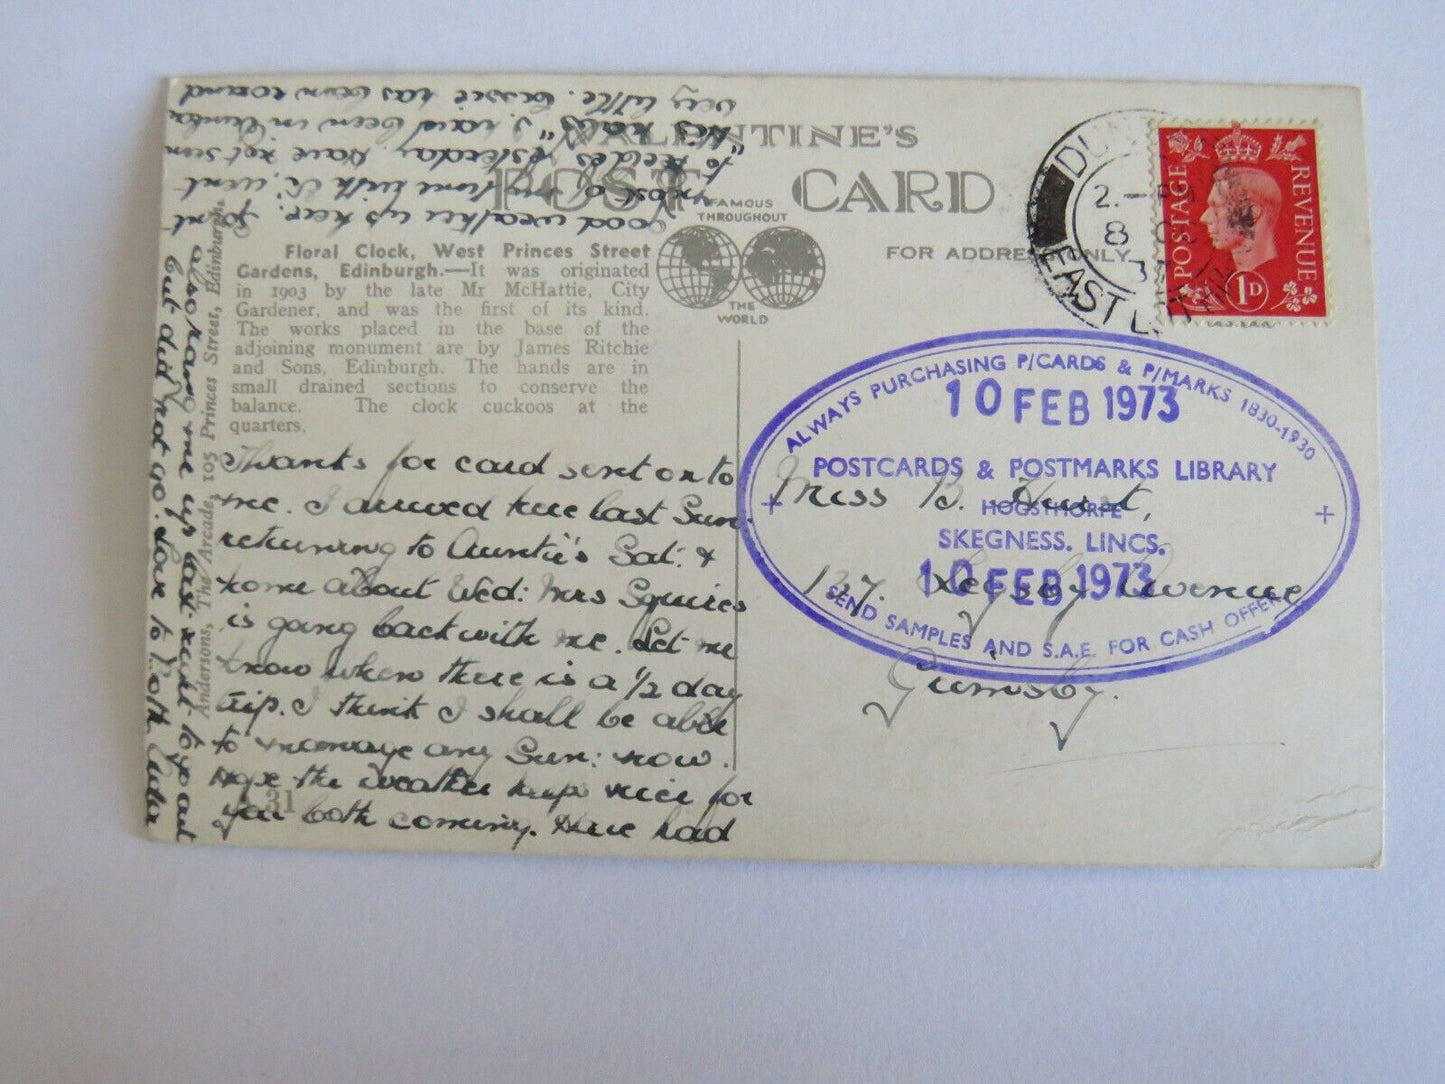 VALENTINE'S
POST CARD
FAMOUS
THROUGHOUT
THE
WORLD
FOR ADDRESS ONLY
Floral Clock, West Princes Street
Gardens, Edinburgh.—It was originated
in 1903 by the late Mr McHattie, City
Gardener, and was the first of its kind.
The works placed in the base of the
adjoining monument are by James Ritchie
and Sons, Edinburgh. The hands are in
small drained sections to conserve the
balance. The clock cuckoos at the
quarters.
Andersons, The Arcade, 105 Princes Street, Edinburgh.
A 31
Thanks for card sent on to
me. I arrived here last Sun.
returning to Auntie's Sat: &
home about Wed: Mrs Squires
is going back with me. Let me
know when there is a ½ day
trip. I think I shall be able
to manage any Sun: now.
Hope the weather keeps nice for
you both coming. Have had
good weather up here. Spent
most of my time with K. went
to Leeds yesterday. Have not seen
"His Nabs" I. said been in
very little. Cissie has been round
also rang me up last to go out
but did not go. Love to both
Miss B. Hurst,
137. Legsby Avenue
Grimsby.
DUN
2.- PM
8
37
EAST L
POSTAGE
REVENUE
1D
ALWAYS PURCHASING P/CARDS & P/MARKS 1830-1930
10 FEB 1973
POSTCARDS & POSTMARKS LIBRARY
HOGSTHORPE
SKEGNESS. LINCS.
10 FEB 1973
SEND SAMPLES AND S.A.E. FOR CASH OFFER